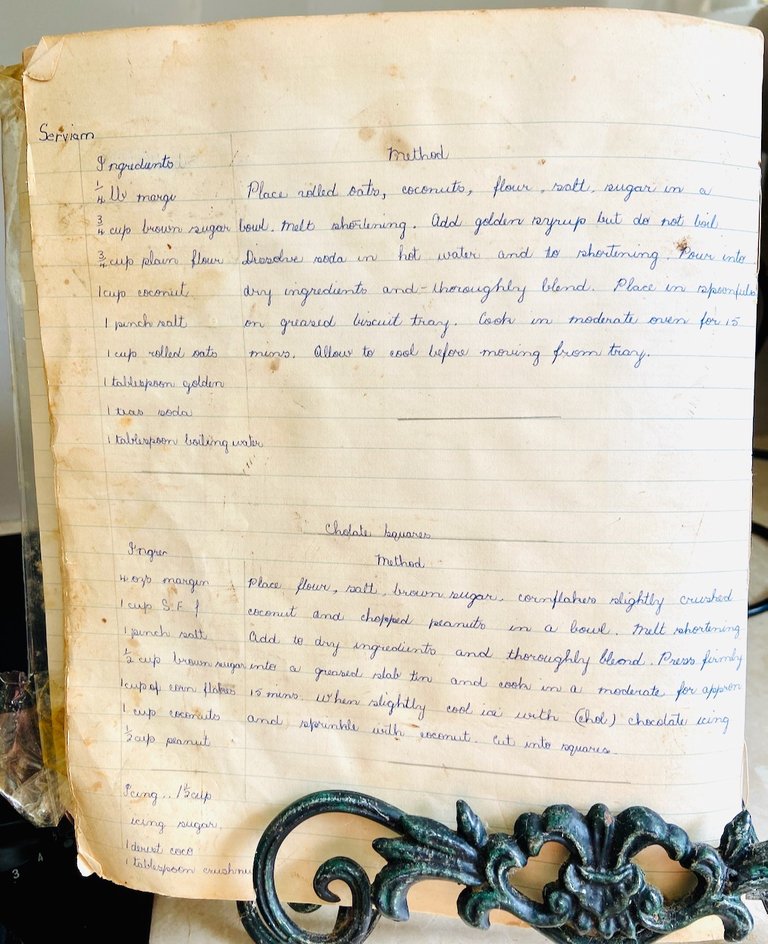 Serviam
Ingredients
Method
1/4 lb marge
Place rolled oats, coconuts, flour, salt, sugar in a
3/4 cup brown sugar
bowl. Melt shortening. Add golden syrup but do not boil
3/4 cup plain flour
Dissolve soda in hot water and to shortening. Pour into
1 cup coconut
dry ingredients and thoroughly blend. Place in spoonfuls
1 pinch salt
on greased biscuit tray. Cook in moderate oven for 15
1 cup rolled oats
mins. Allow to cool before moving from tray.
1 tablespoon golden
1 teas soda
1 tablespoon boiling water
Cholate Squares
Ingre
Method
4 ozs margin
Place flour, salt, brown sugar, cornflakes slightly crushed
1 cup S.F f
coconut and chopped peanuts in a bowl. Melt shortening
1 pinch salt
Add to dry ingredients and thoroughly blend. Press firmly
1/2 cup brown sugar
into a greased slab tin and cook in a moderate for approx
1 cup of corn flakes
15 mins. When slightly cool ice with (chol) chocolate icing
1 cup coconuts
and sprinkle with coconut. Cut into squares.
1/2 cup peanut
Icing .. 1 1/2 cup
icing sugar,
coco
1 tablespoon
3
4